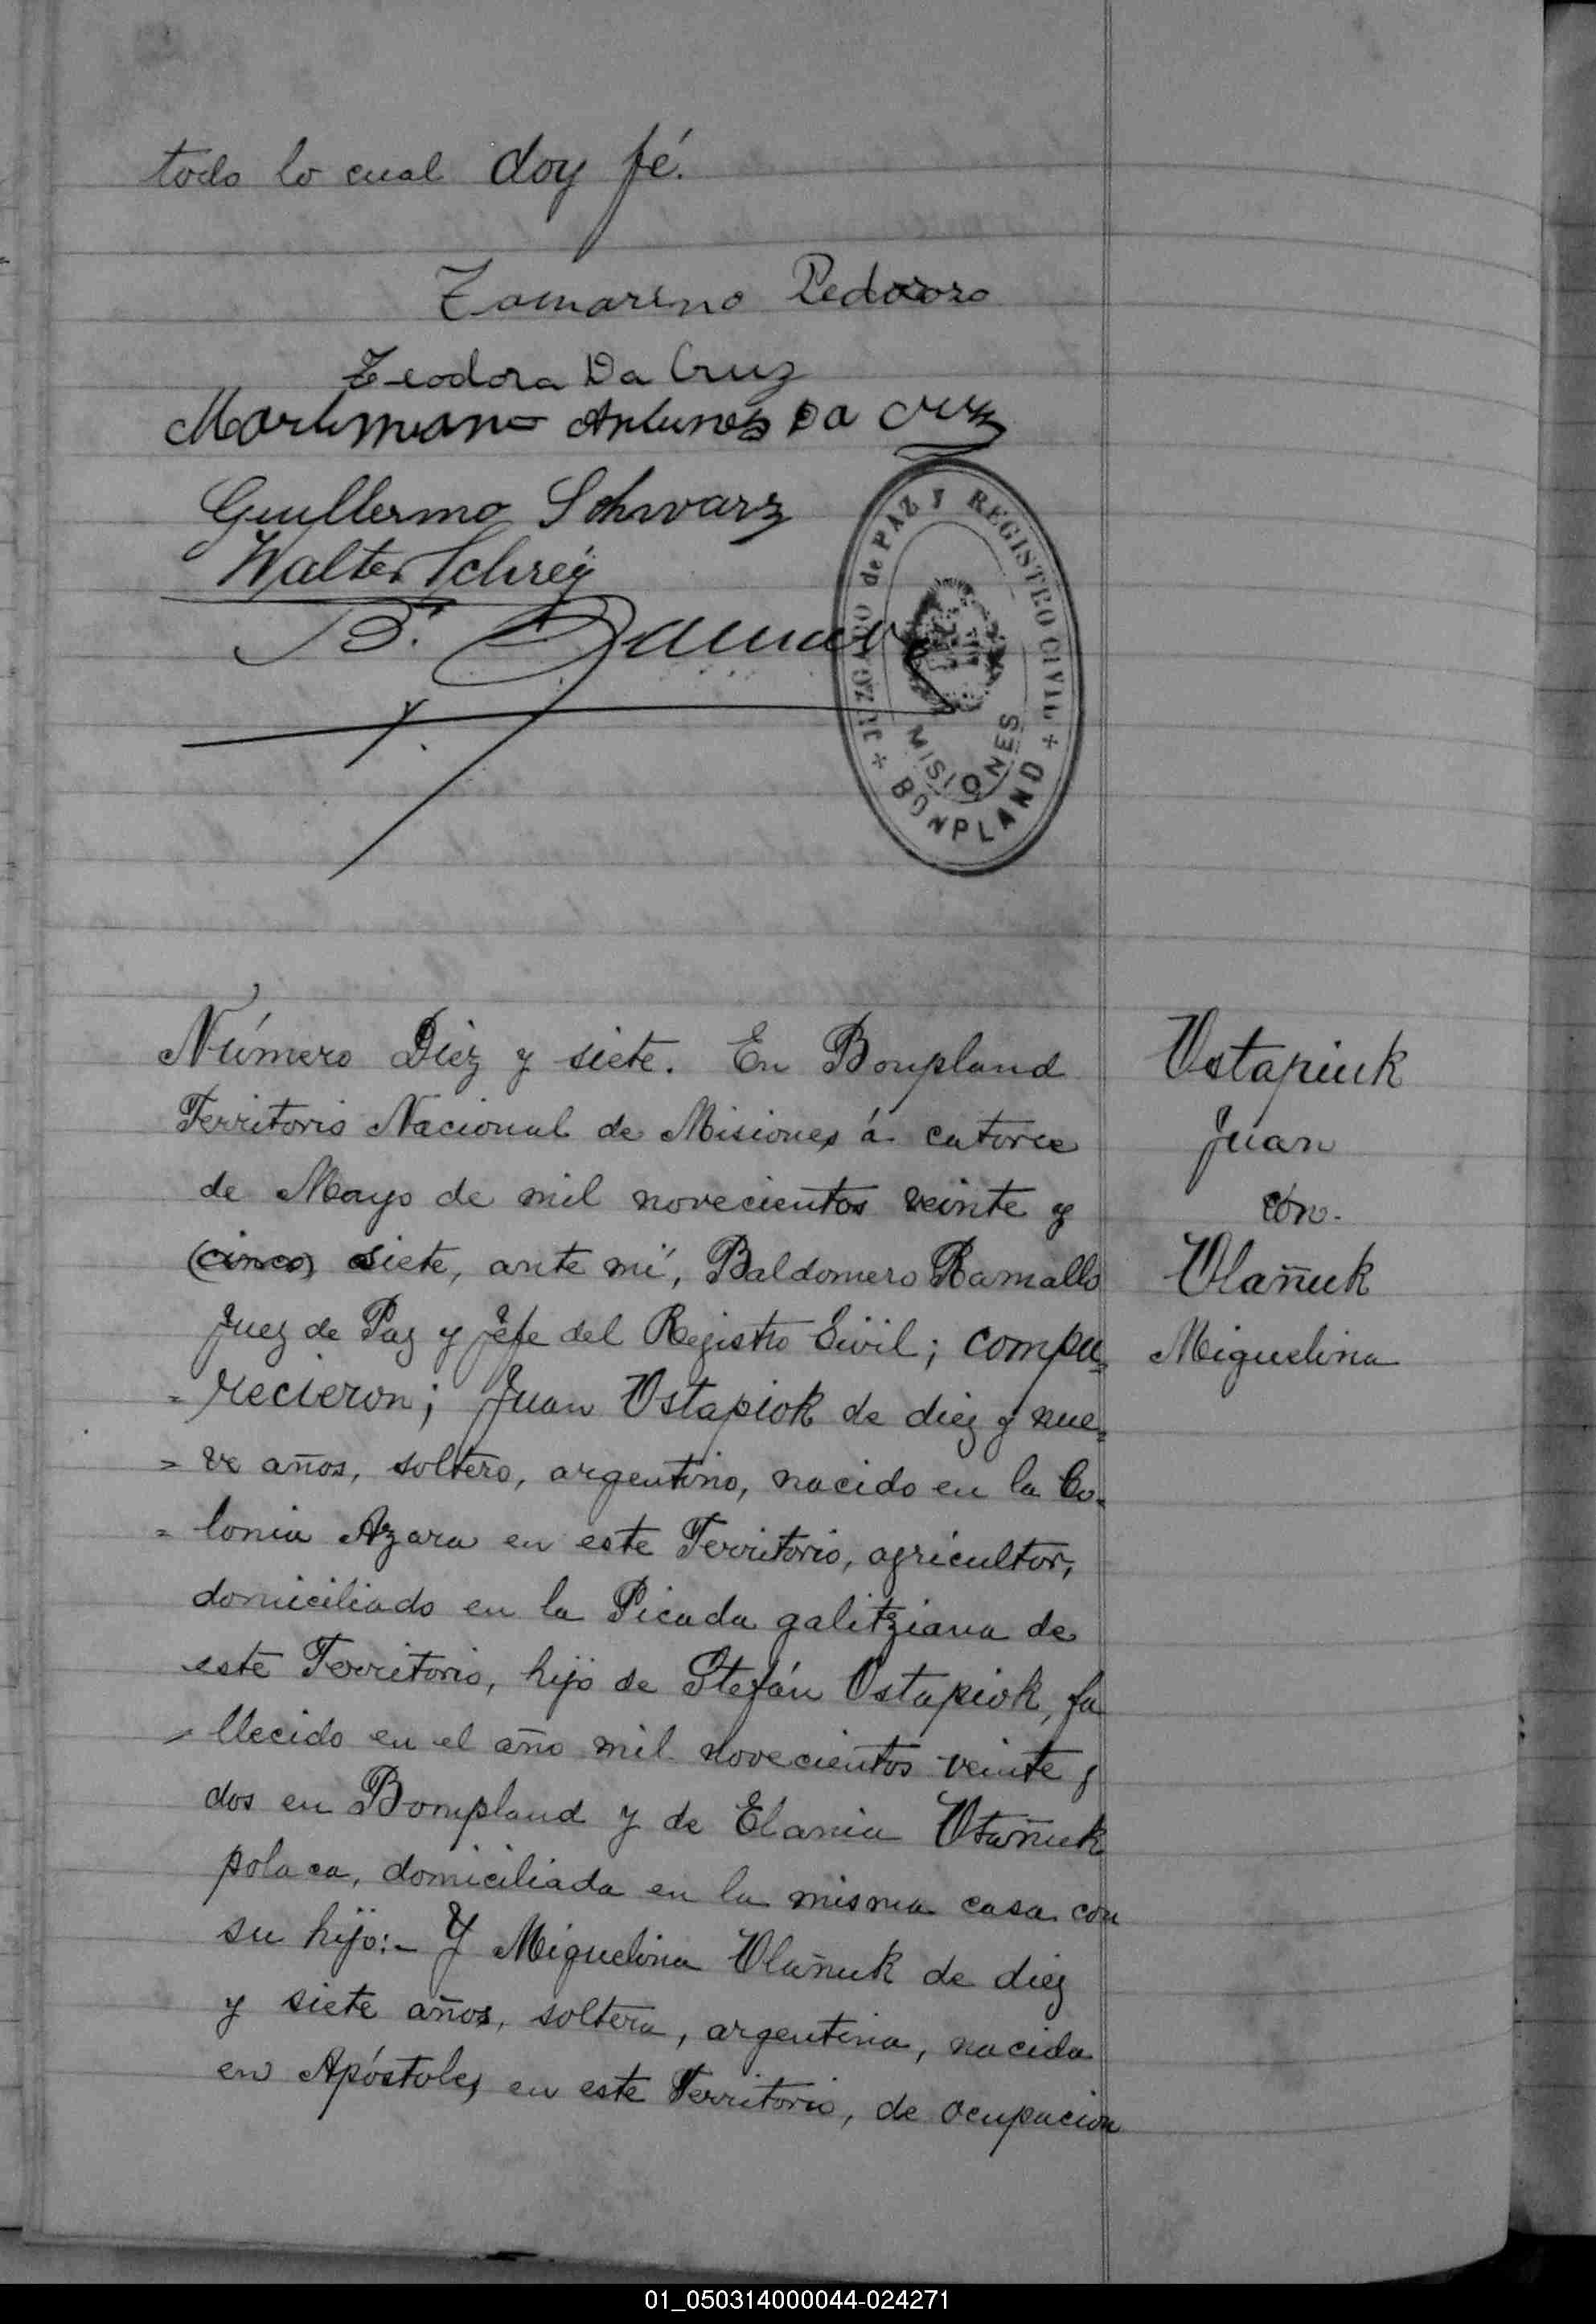 todo lo cual doy fé.
Tamarino Pedrozo
Teodora Da Cruz
Martimiano Antunes Da Cruz
Guillermo Schwarz
Walter Schrey
B. Ramallo
JUZGADO de PAZ Y REGISTRO CIVIL
MISIONES
BONPLAND
Número Diez y siete. En Bonpland
Territorio Nacional de Misiones á catorce
de Mayo de mil novecientos veinte y
(cinco) siete, ante mí, Baldomero Ramallo
Juez de Paz y Jefe del Registro Civil; compa=
=recieron; Juan Ostapiok de diez y nue=
=ve años, soltero, argentino, nacido en la Co=
=lonia Azara en este Territorio, agricultor,
domiciliado en la Picada galitziana de
este Territorio, hijo de Stefán Ostapiok, fa
llecido en el año mil novecientos veinte y
dos en Bompland y de Elania Otañuk
polaca, domiciliada en la misma casa con
su hijo:- Y Miguelina Olañuk de diez
y siete años, soltera, argentina, nacida
en Apóstoles en este Territorio, de ocupacion
Ostapiuk
Juan
con.
Olañuk
Miguelina
01_050314000044-024271